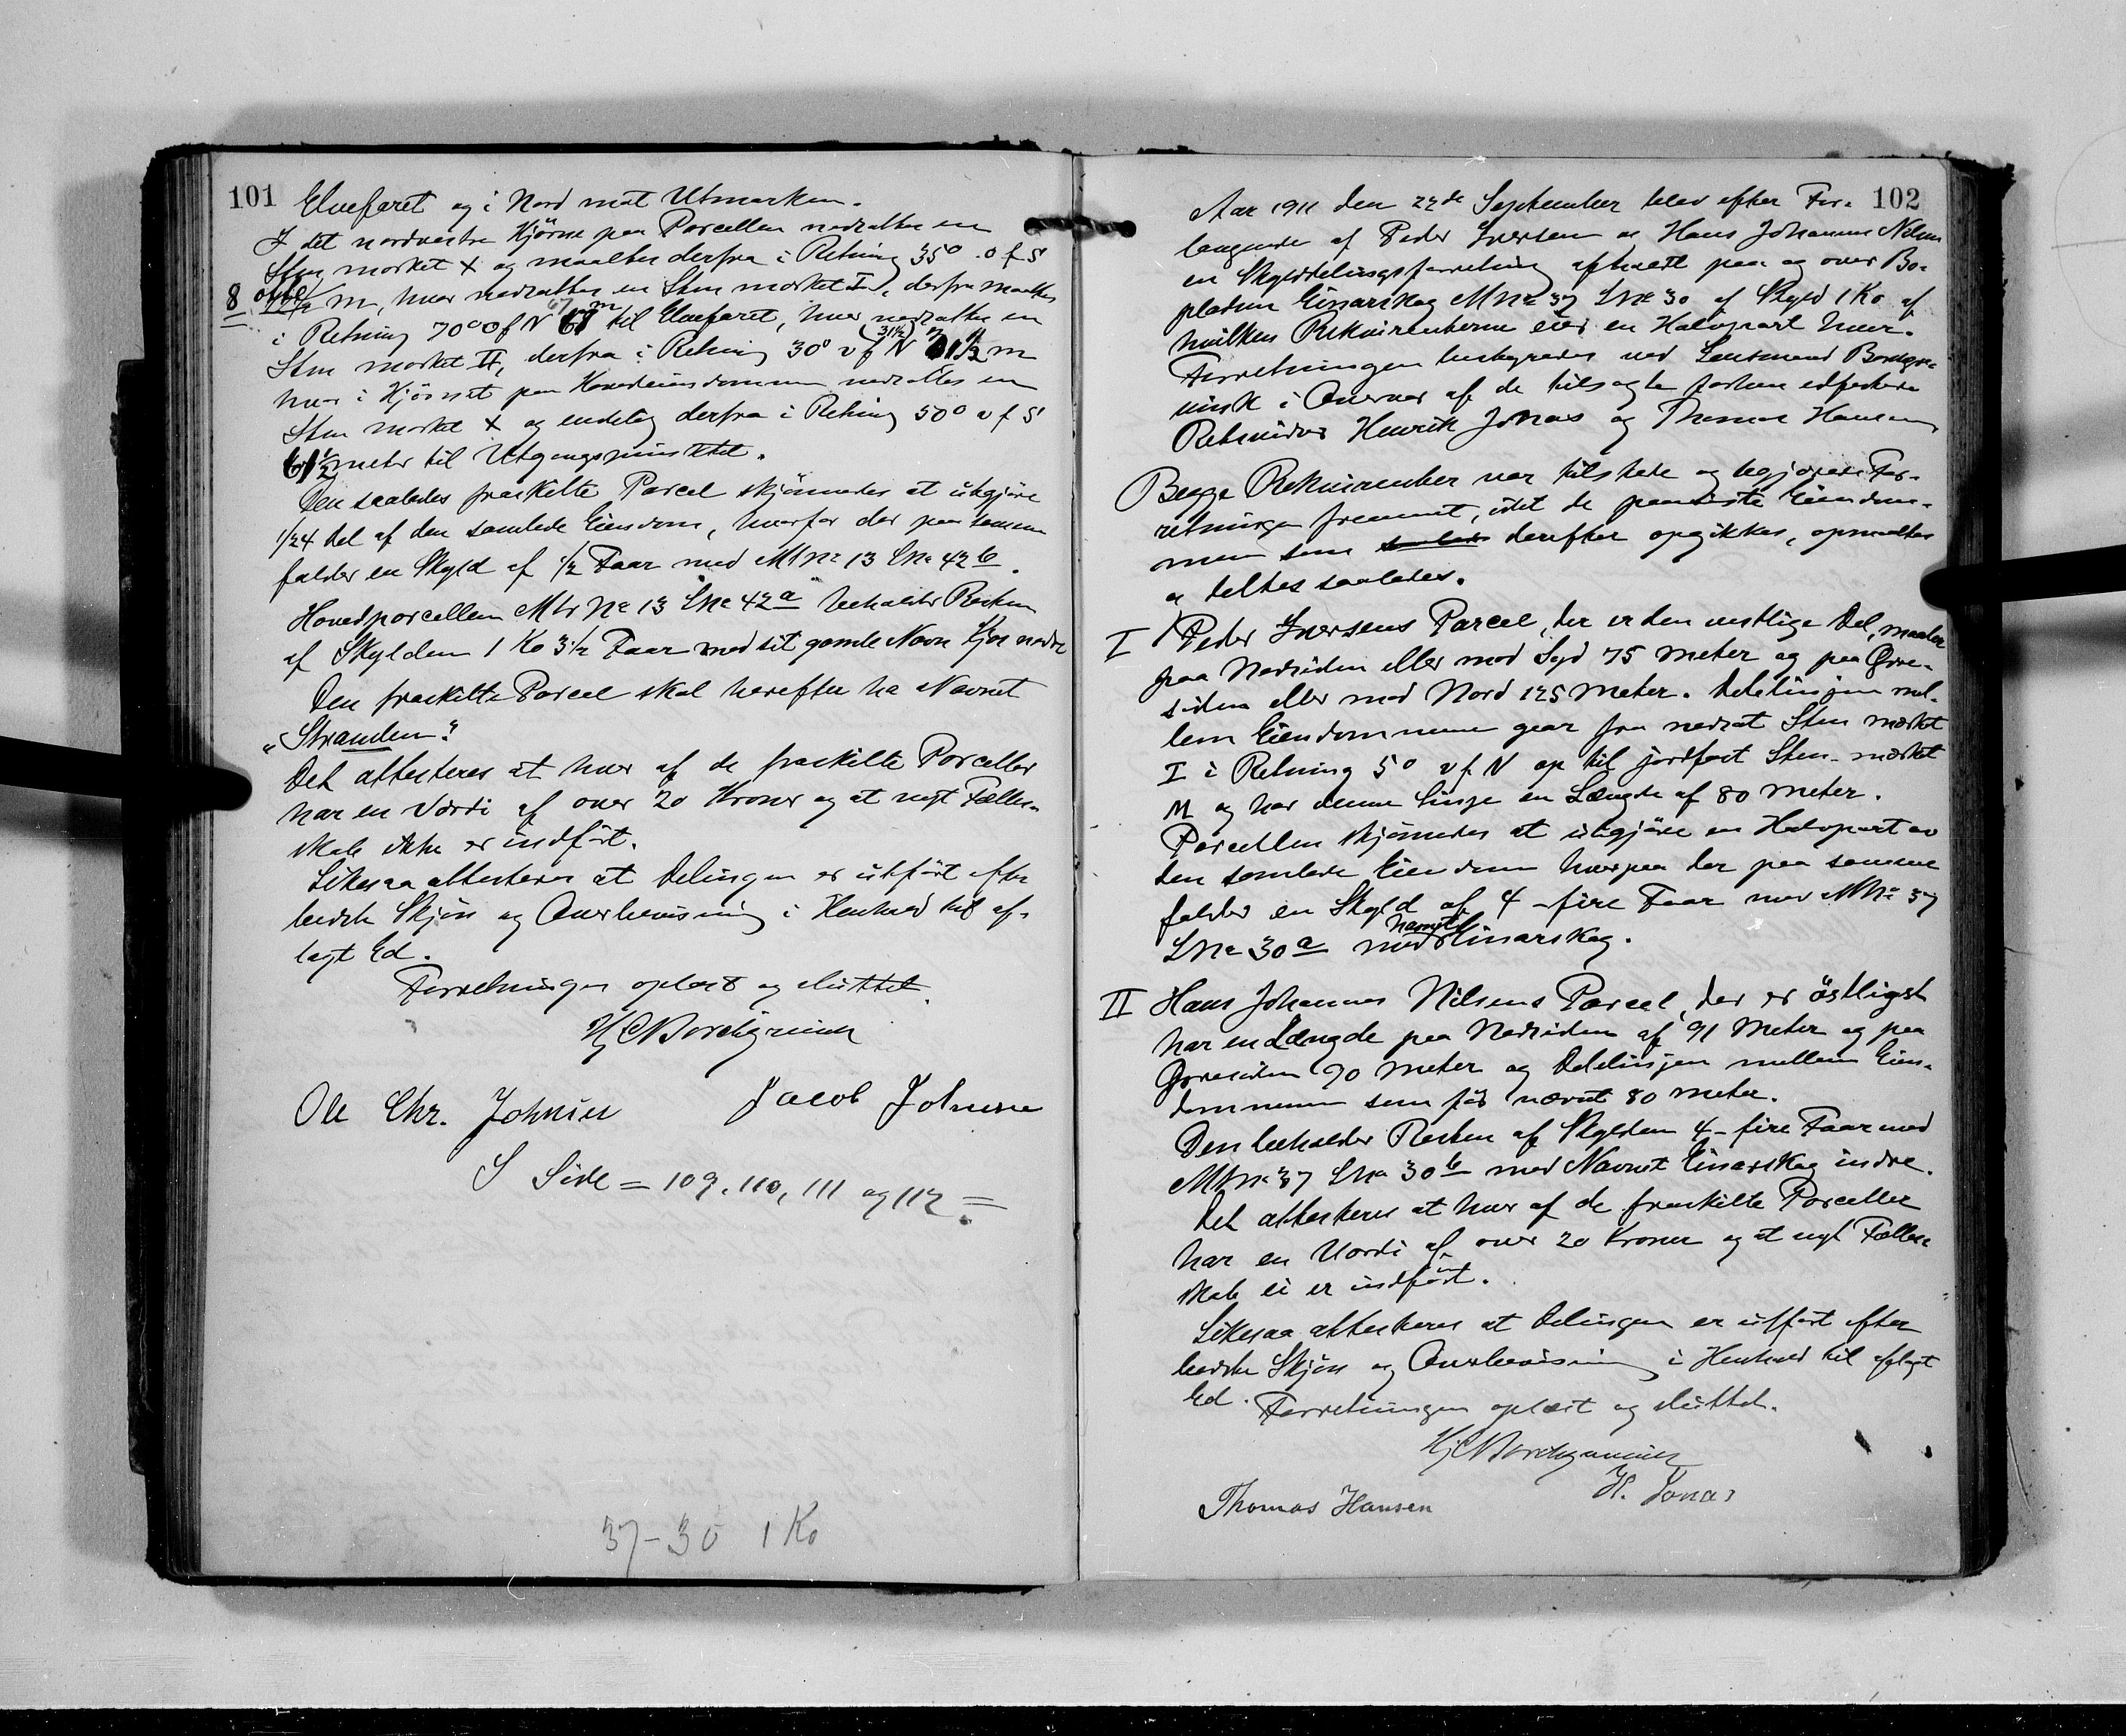 101
Elvefaret og i Nord mot Utmarken.
I det nordvestre Hjörne paa Parcellen nedsattes en
Sten, mærket X og maaltes derfra i Retning 35° o f S
8 otte m, hvor nedsattes en Sten mærket I, derfra maaltes
i Retning 70° O f N 67 m til Elvefaret, hvor nedsattes en
Sten mærket II, derfra i Retning 30° v f N (31½) m
hvor i Hjörnet paa Hovedeiendommen nedsattes en
Sten mærket X og endelig derfra i Retning 50° v f S
61½ meter til Utgangspunktet.
Den saaledes fraskilte Parcel skjönnedes at utgjöre
1/24 del af den samlede Eiendom, hvorfor der paa samme
falder en Skyld af ½ Faar med Mtr No 13 Lno 42 b.
Hovedparcellen Mtr No 13 Lno 42 a beholder Resten
af Skylden 1 Ko 3½ Faar med sit gamle Navn Kjos nedre
Den fraskilte Parcel skal herefter ha Navnet
"Stranden".
Det attesteres at hver af de fraskilte Parceller
har en Værdi af over 20 Kroner og at nyt Fælles-
skab ikke er indfört.
Likesaa attesteres at Delingen er utfört efter
bedste Skjön og Overbevisning i Henhold til af-
lagt Ed.
Forretningen oplæst og sluttet.
Hj C Borchgrevink
Ole Chr. Johnsen Jacob Johnsen
S Side = 109, 110, 111 og 112 =
37-30 1 Ko
102
Aar 1911 den 22de September blev efter For-
langende af Peder Iversen og Hans Johannes Nilsen
en Skylddelingsforretning afholdt paa og over Bo-
pladsen Einarskog Mno 37 Lno 30 af Skyld 1 Ko af
hvilken Rekvirenterne eier en Halvpart hver.
Forretningen bestyredes ved Lensmand Borchgre-
vink i Overvær af de tilsagte forhen edfæstede
Retsvidner Henrik Jonas og Thomas Hansen
Begge Rekvirenter var tilstede og begjærede For-
retningen fremmet, idet de paaviste Eiendom-
men som derefter opgikkes, opmaaltes
og deltes saaledes.
I Peder Iversens Parcel, der er den vestlige Del, maaler
paa Nedsiden eller mod Syd 75 meter og paa Övre-
siden eller mod Nord 125 Meter. Delelinjen mel-
lem Eiendommene gaar fra nedsat Sten mærket
I i Retning 5° v f N op til jordfast Sten mærket
M og har denne Linje en Længde af 80 meter.
Parcellen skjönnedes at utgjöre en Halvpart av
den samlede Eiendom hvorpaa der paa samme
falder en Skyld af 4 - fire Faar med Mno 37
Lno 30 a med navnet Einarskog.
II Hans Johannes Nilsens Parcel, der er östligst
har en Længde paa Nedsiden af 91 Meter og paa
Övresiden 90 meter og Delelinjen mellem Eien-
dommene som för nævnt 80 meter.
Den beholder Resten af Skylden 4 - fire Faar med
Mtrno 37 Lno 30 b med Navnet Einarskog indre.
Det attesteres at hver af de fraskilte Parceller
har en Værdi af over 20 Kroner og at nyt Fælles-
skab ei er indfört.
Likesaa attesteres at Delingen er utfört efter
bedste Skjön og Overbevisning i Henhold til aflagt
Ed. Forretningen oplæst og sluttet.
Hj C Borchgrevink
Thomas Hansen H. Jonas